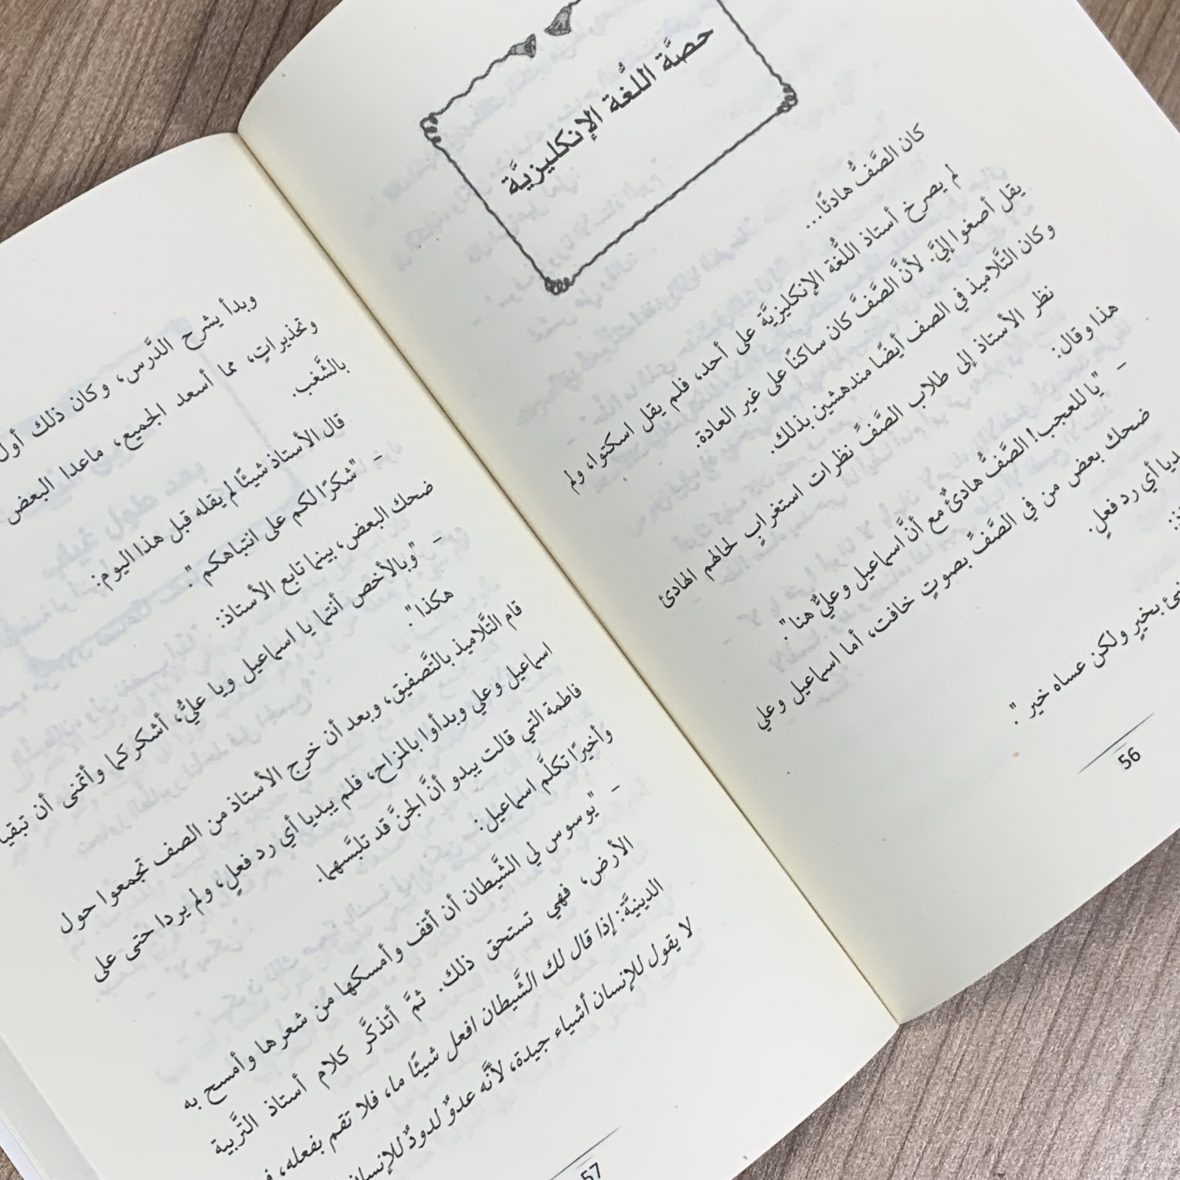 حصَّة اللُّغة الإنكليزيَّة
كان الصَّفُّ هادئًا...
لم يصرخ أستاذ اللُّغة الإنكليزيَّة على أحد، فلم يقل اسكتوا، ولم
يقل أصغوا إليَّ. لأنَّ الصَّفَّ كان ساكنًا على غير العادة.
وكان التَّلاميذ في الصف أيضًا مندهشين بذلك.
نظر الأستاذ إلى طلاب الصَّفِّ نظرات استغرابٍ لحالهم الهادئ
هذا وقال:
- "يا للعجب! الصَّفُّ هادئٌ مع أنَّ اسماعيل وعليٌّ هنا".
ضحك بعض من في الصَّفِّ بصوتٍ خافت، أما اسماعيل وعلي
أي رد فعلٍ.
بخيرٍ ولكن عساه خير".
56
وبدأ يشرح الدَّرس، وكان ذلك أول
وتحذيراتٍ، مما أسعد الجميع، ماعدا البعض
بالشَّغب.
قال الأستاذ شيئًا لم يقله قبل هذا اليوم:
- "شكرًا لكم على انتباهكم".
ضحك البعض، بينما تابع الأستاذ:
- "وبالأخص أنتما يا اسماعيل ويا عليُّ، أشكركما وأتمنى أن تبقيا
هكذا".
قام التَّلاميذ بالتَّصفيق، وبعد أن خرج الأستاذ من الصف تجمعوا حول
اسماعيل وعلي وبدأوا بالمزاح، فلم يبديا أي رد فعلٍ، ولم يردا حتى على
فاطمة التي قالت يبدو أنَّ الجنَّ قد تلبَّسهما.
وأخيرًا تكلَّم اسماعيل:
- "يوسوس لي الشَّيطان أن أقف وأمسكها من شعرها وأمسح به
الأرض، فهي تستحق ذلك. ثمَّ أتذكَّر كلام أستاذ التَّربية
الدينيَّة: إذا قال لك الشَّيطان افعل شيئًا ما، فلا تقم بفعله،
لا يقول للإنسان أشياء جيدة، لأنَّه عدوٌّ لدودٌ للإنسان
57